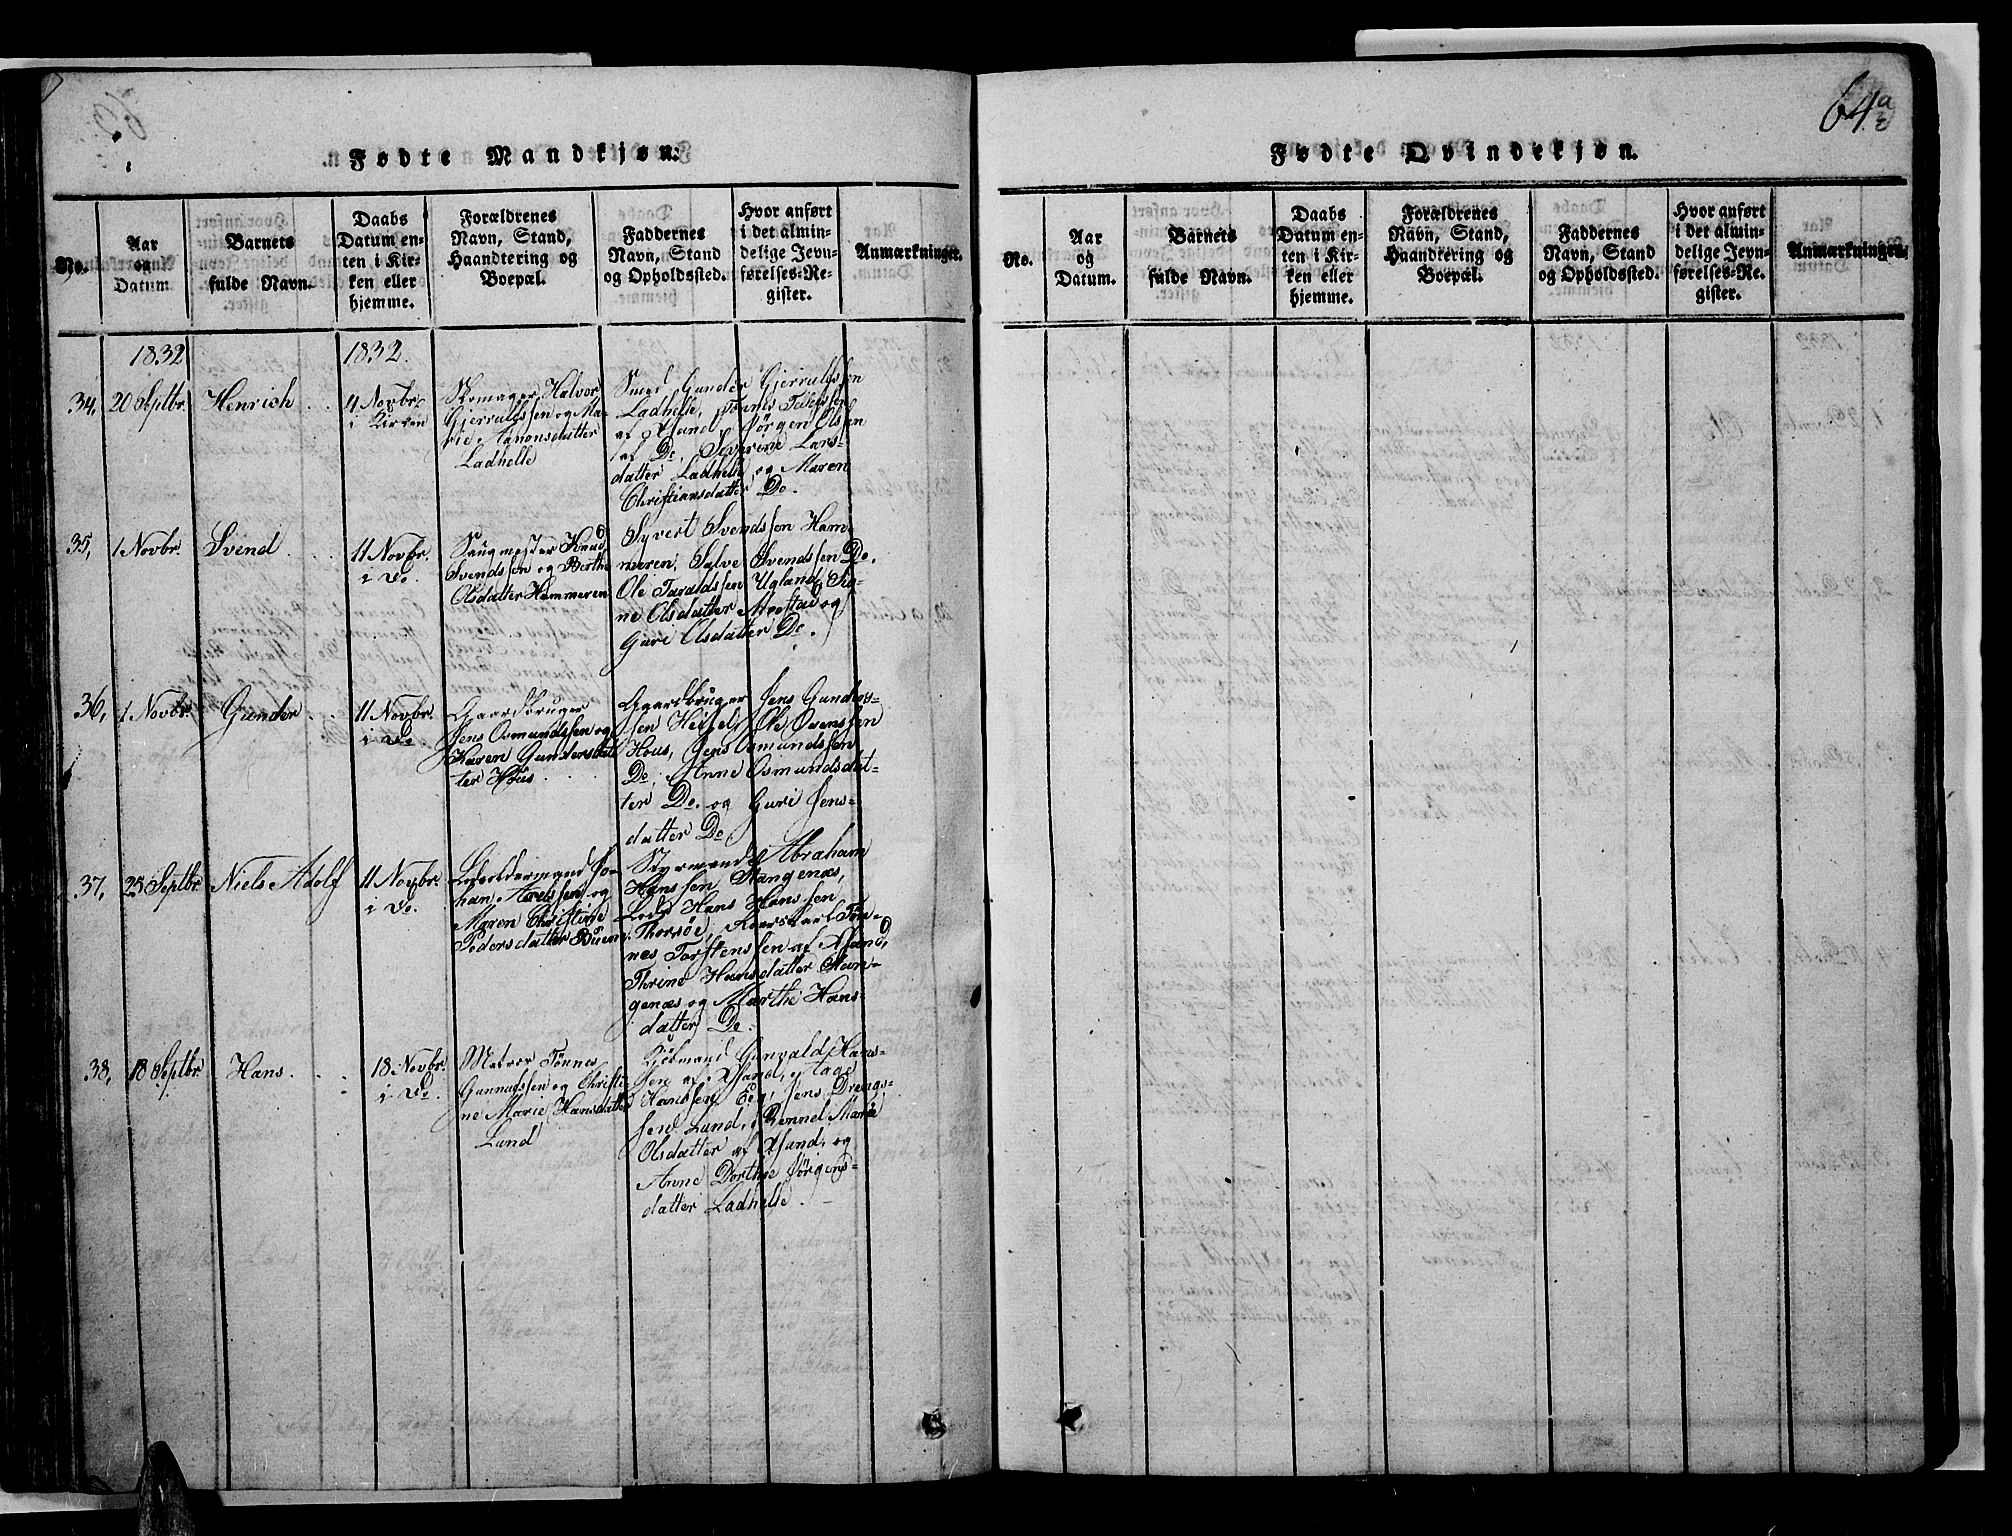 64a
Fødte Mandkjøn.
No.
Aar
og
Datum
Barnets
fulde Navn.
Daabs
Datum en-
ten i Kir-
ken eller
hjemme.
Forældrenes
Navn, Stand,
Haandtering og
Boepæl.
Faddernes
Navn, Stand
og Opholdssted.
Hvor anført
i det almin-
delige Jevn-
førelses-Re-
gister.
Anmærkninger.
1832
1832.
34,
20 Septbr.
Henrich
4 Novbr.
i Kirken
Skomager Halvor
Gjerulfssen og Ma-
rie Aanonsdatter
Ladhelle
Smed Gunder Gjerulfssen
Ladhelle, Tønnes
af Øsund, Jørgen Olsen
af Do, Severine Lars-
datter Ladhelle og Maren
Christiansdatter Do.
35,
1 Novbr.
Svend
11 Novbr.
i Do.
Saugmester Knud
Svendssen og Berthe
Olsdatter Hammeren
Syvert Svendssen Ham-
meren, Salve Svendssen Do.
Ole Taraldssen Ugland, Sig-
ne Olsdatter og
Guri Olsdatter Do.
36,
1 Novbr.
Gunder
11 Novbr.
i Do
Gaardbruger
Jens Osmundssen og
Karen Gundersdat-
ter Hous
Gaardbruger Jens Gunders-
sen Ole Evenssen
Hous, Jens Osmundssen
Do, Anne Osmundsdat-
ter Do. og Guri Jens-
datter Do
37,
25 Septbr.
Niels Adolf
11 Novbr.
i Do.
Lodsoldermand Jo-
han Axelssen og
Maren Christine
Pedersdatter Buene
Styrmand Abraham
Hanssen Stangenæs,
Lods Hans Hanssen
Thorsøe, Tøn-
nes Torstenssen af
Thrine Hansdatter Stan-
genæs og Marthe Hans-
datter Do.
38,
18 Septbr.
Hans
18 Novbr.
i Do.
Matros Tønnes
Gunnufssen og Christi-
ne Marie Hansdatter
Lund
Kjøbmand Gunvald Hans-
sen af Aage
Hanssen Eeg, Jens Drengs-
sen Lund, Marie
Olsdatter af og
Anne Dorthe Jørgens-
datter Ladhelle.
Fødte Qvindekjøn.
No.
Aar
og
Datum.
Barnets
fulde Navn.
Daabs
Datum en-
ten i Kir-
ken eller
hjemme.
Forældrenes
Navn, Stand,
Haandtering og
Boepæl.
Faddernes
Navn, Stand
og Opholdssted.
Hvor anført
i det almin-
delige Jevn-
førelses-Re-
gister.
Anmærkninger.